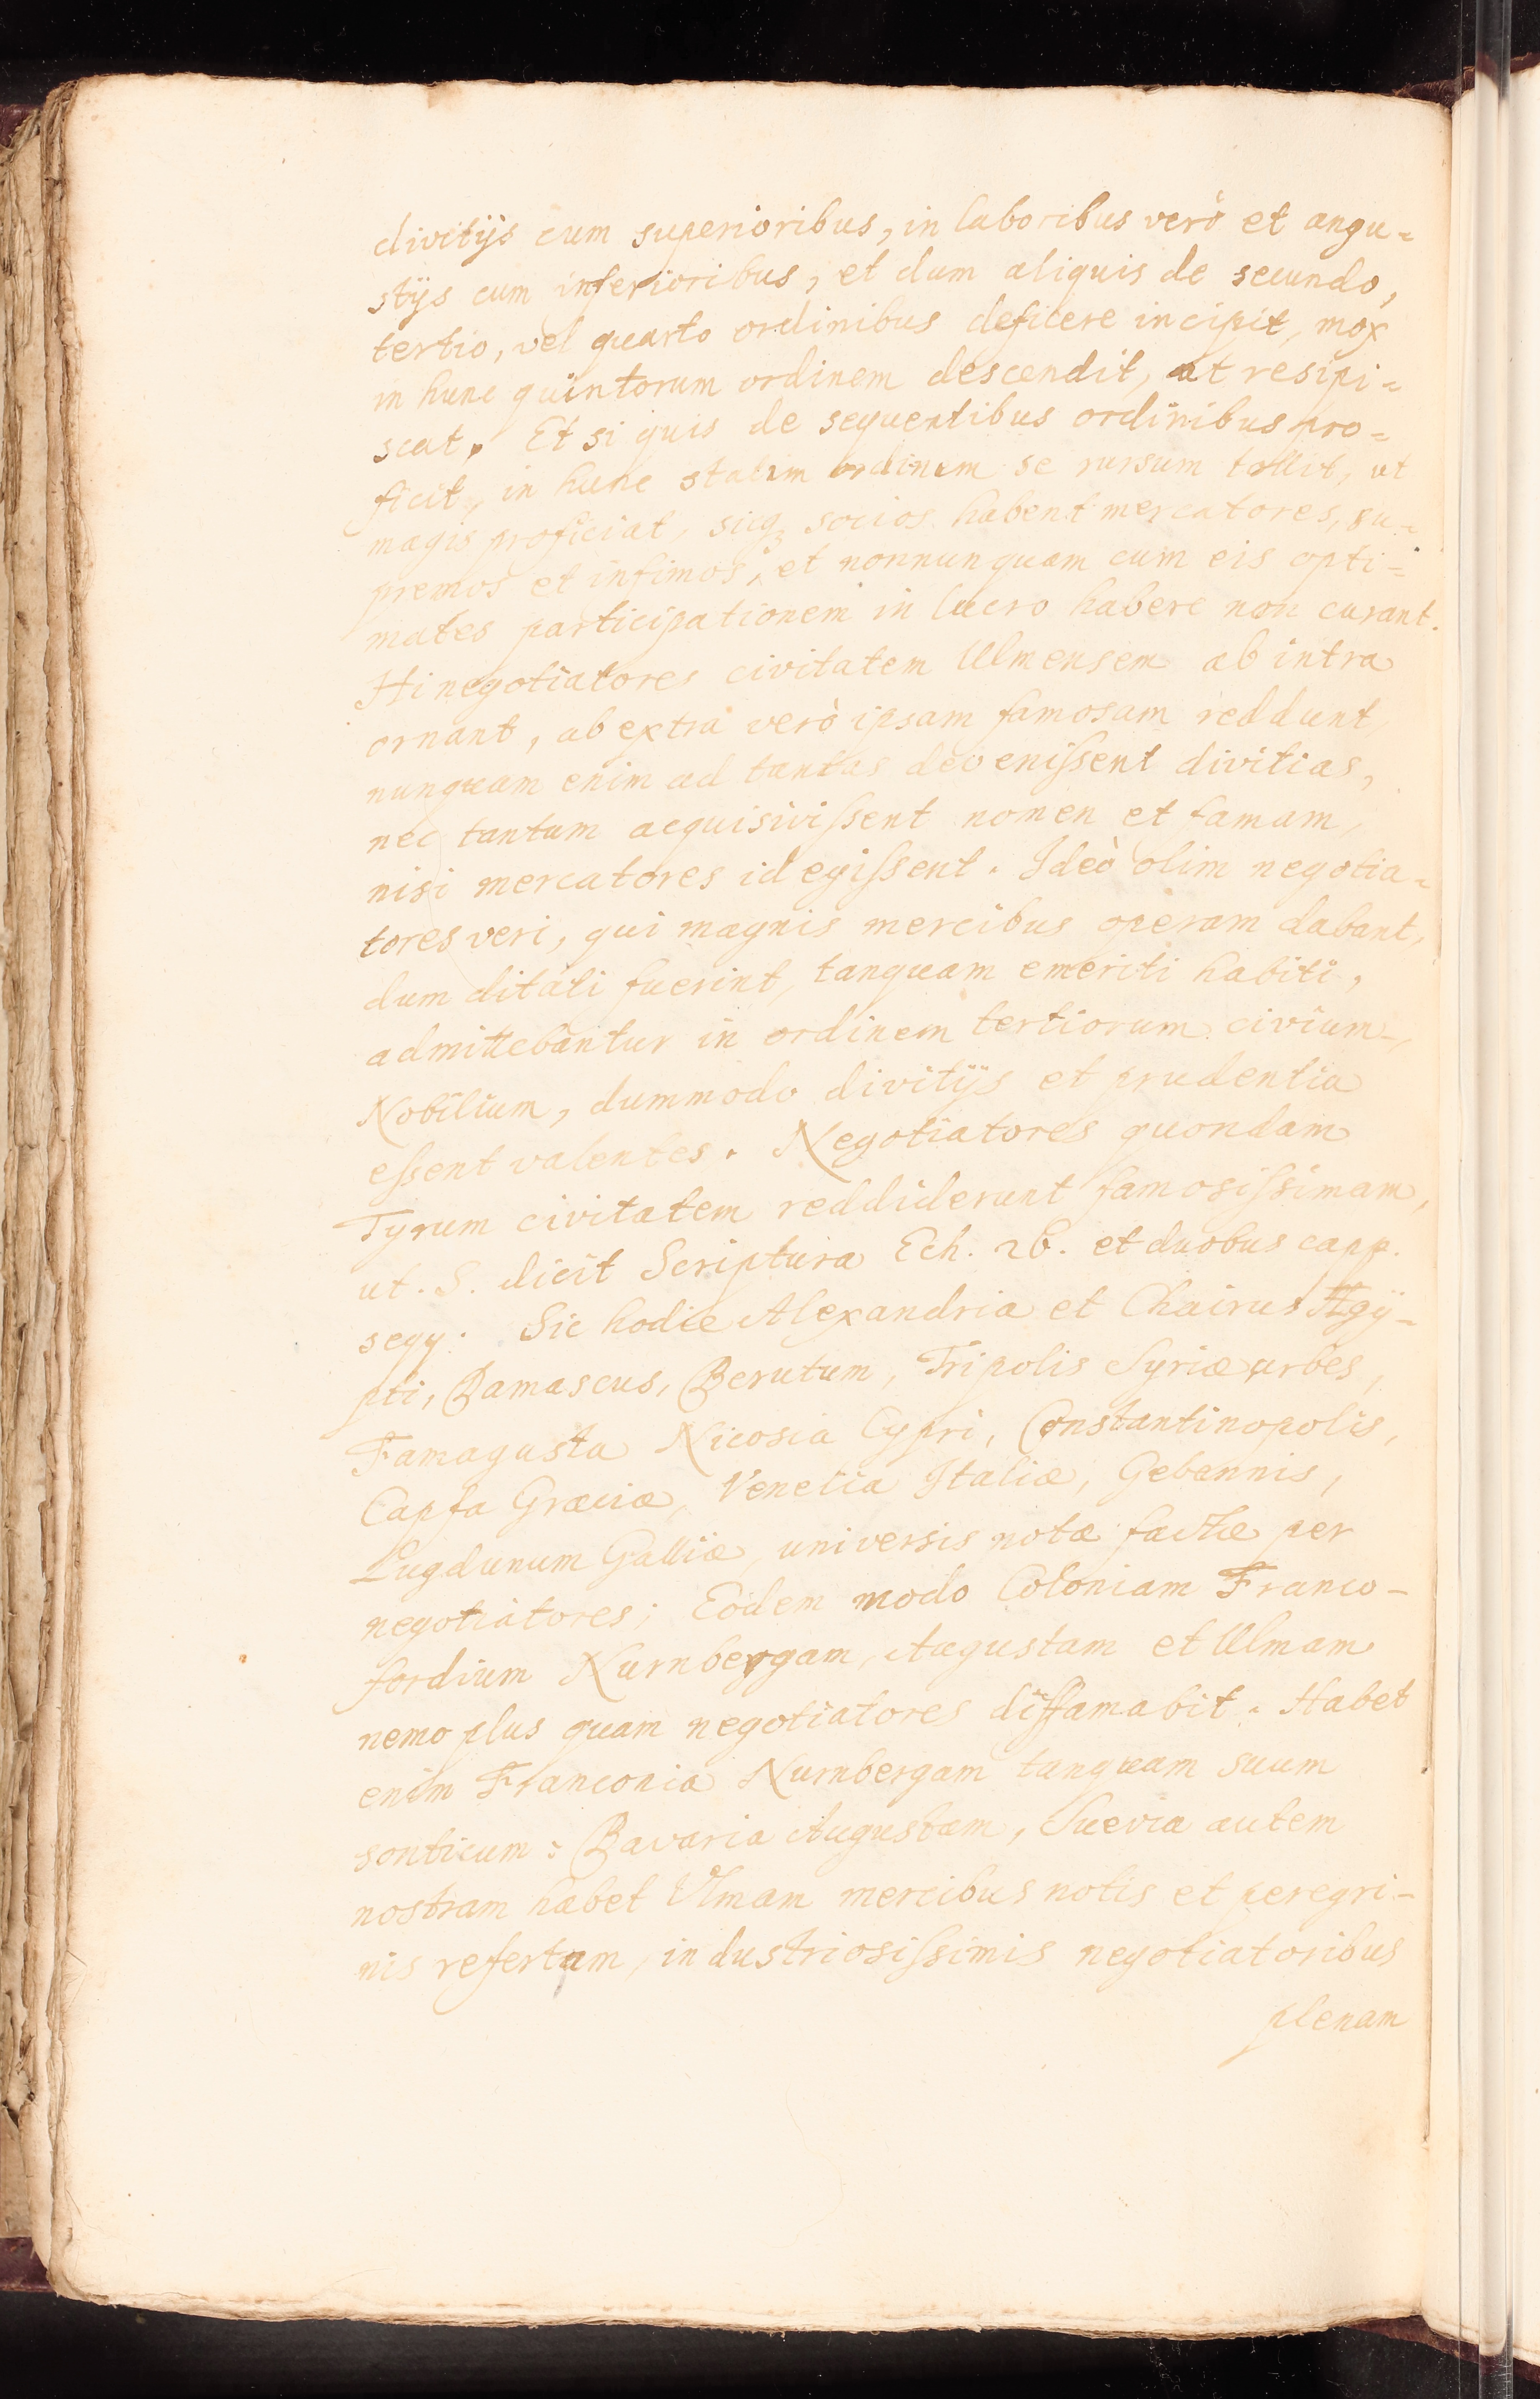 divitijs cum superioribus, in laboribus verò et angu-
stijs cum inferioribus, et dum aliquis de secundo,
tertio, vel quarto ordinibus deficere incipit, mox
in hunc quintorum ordinem descendit, ut resipi-
scat. Et si quis de sequentibus ordinibus pro-
ficit, in hunc statim ordinem se rursum tollit, ut
magis proficiat, sicq; socios habent mercatores, su-
premos et infimos, et nonnunquam cum eis opti-
mates participationem in lucro habere non curant.
Hi negotiatores civitatem Ulmensem ab intra
ornant, ab extra verò ipsam famosam reddunt
nunquam enim ad tantas devenissent divitias,
nec tantum acquisivissent nomen et famam,
nisi mercatores id egissent. Ideò olim negotia-
tores veri, qui magnis mercibus operam dabant,
dum ditati fuerint, tanquam emeriti habiti,
admittebantur in ordinem tertiorum civium,
Nobilium, dummodo divitijs et prudentia
essent valentes. Negotiatores quondam
Tyrum civitatem reddiderunt famosissimam,
ut. S. dicit Scriptura Ech. 26. et duobus capp.
seqq. Sic hodie Alexandria et Chairus Ægÿ-
pti, Damascus, Berutum, Tripolis Syriæ urbes,
Famagusta Nicosia Cypri, Constantinopolis,
Capfa Græciæ, Venetia Italiæ, Gebennis,
Lugdunum Galliæ, universis notæ factæ per
negotiatores; Eodem modo Coloniam Franco-
fordium Nurnbergam, Augustam et Ulmam
nemo plus quam negotiatores diffamabit. Habet
enim Franconia Nurnbergam tanquam suum
sonticum: Bavaria Augustam, Suevia autem
nostram habet Ulmam mercibus notis et peregri-
nis refertam, industriosissimis negotiatoribus
plenam